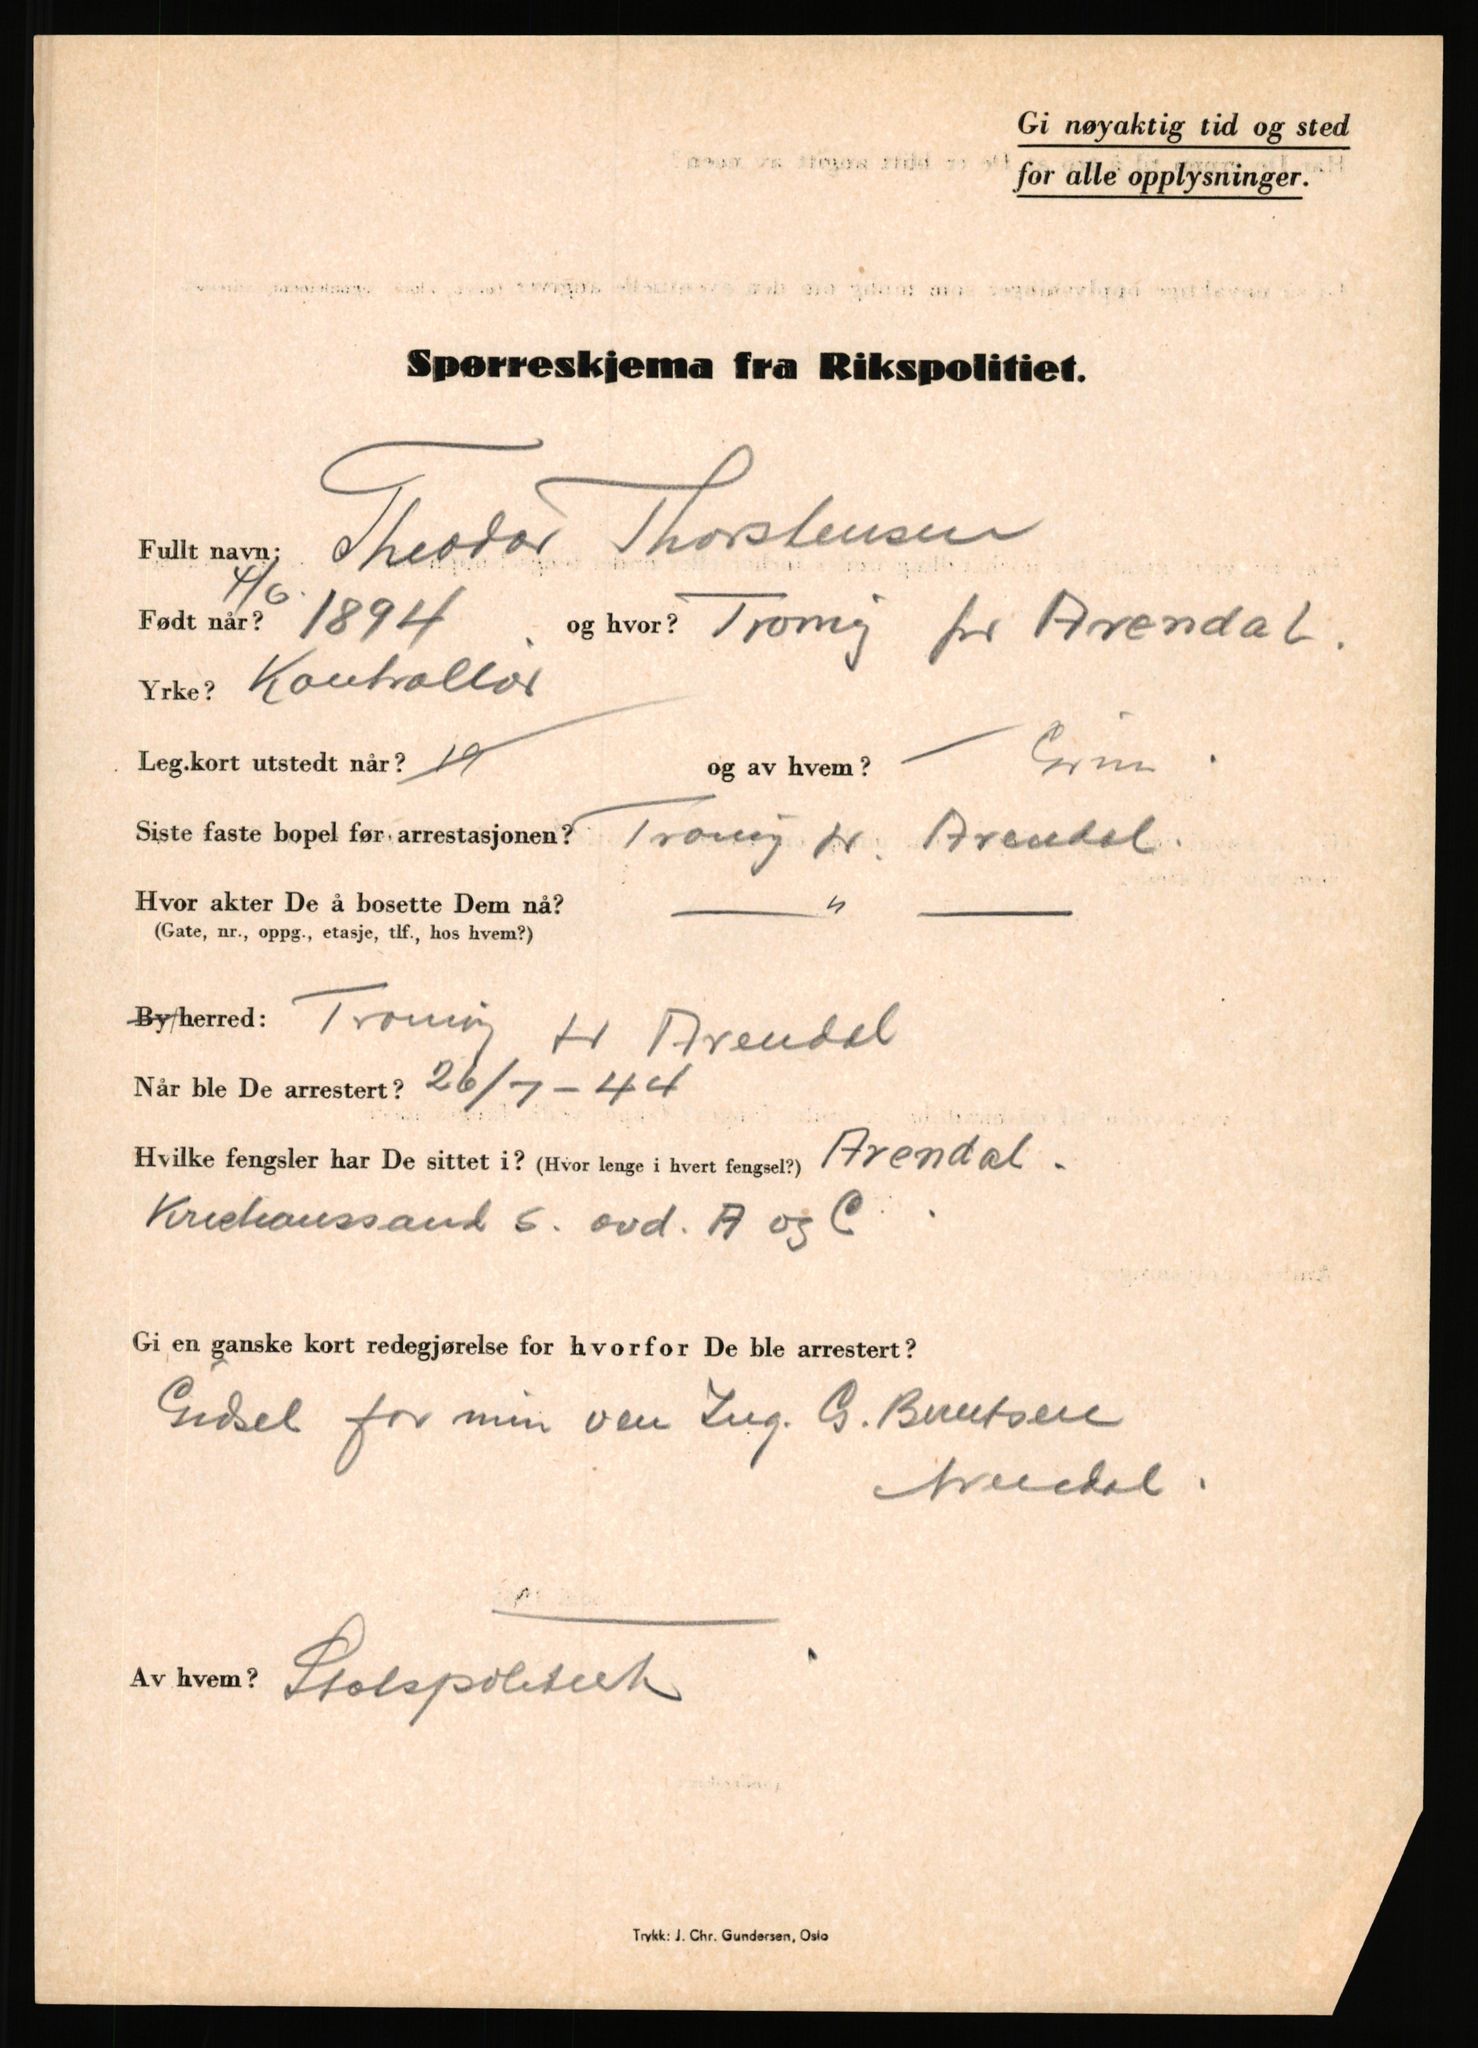 Gi nøyaktig tid og sted
for alle opplysninger.
Spørreskjema fra Rikspolitiet.
Fullt navn: Theodor Thorstensen
Født når? 4/6. 1894 og hvor? Tromøy pr Arendal.
Yrke? Kontrollør
Leg.kort utstedt når? og av hvem?
Siste faste bopel før arrestasjonen? Tromøy pr. Arendal.
Hvor akter De å bosette Dem nå? — " —
(Gate, nr., oppg., etasje, tlf., hos hvem?)
By/herred: Tromøy pr Arendal
Når ble De arrestert? 26/7-44
Hvilke fengsler har De sittet i? (Hvor lenge i hvert fengsel?) Arendal.
Kristianssand S. avd. A og C.
Gi en ganske kort redegjørelse for hvorfor De ble arrestert?
Gidsel for min ven Ing. G. Berntsen
Arendal.
Av hvem? Statspolitiet
Trykk: J. Chr. Gundersen, Oslo